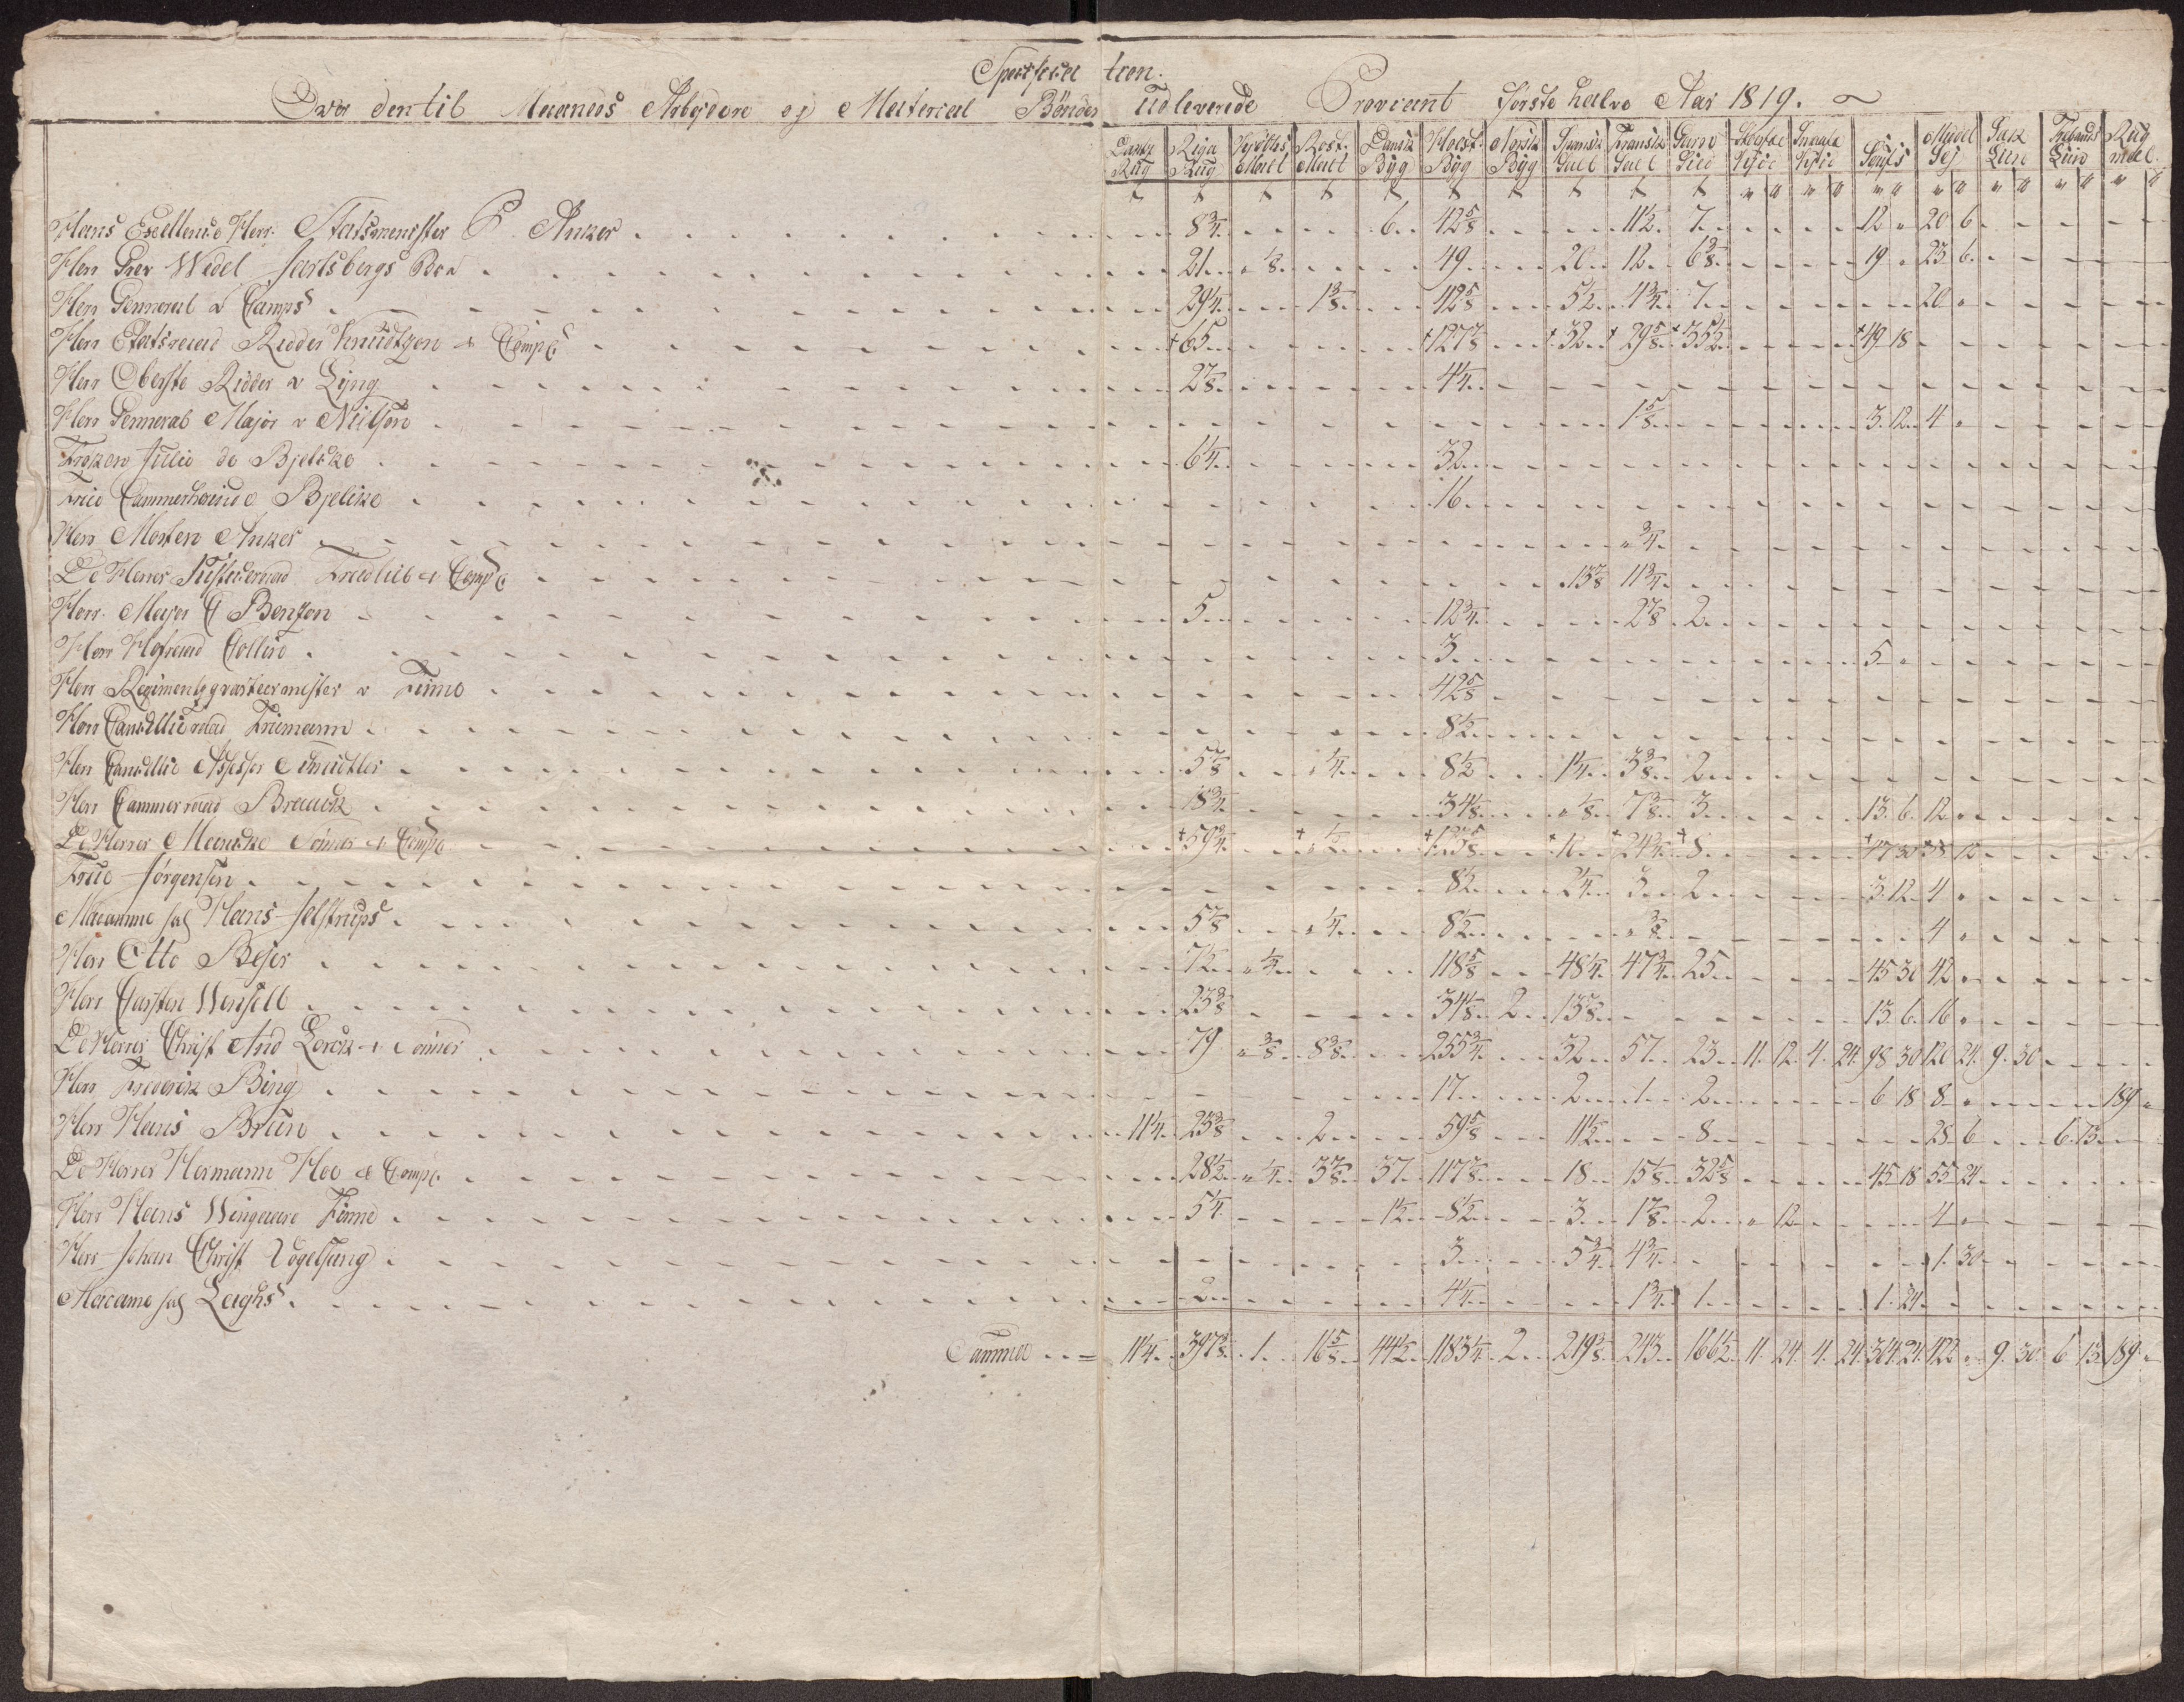 Specification
Over den til Maaneds Arbejdere og Material Bönder udleverede Proviant første halve Aar 1819.
Dansk Rug | Riga Rug | Malt | Rost. Malt | Dansk Byg | Holst. Byg | Norsk Byg | Spansk Salt | Fransk Salt | Garn Sild | Størfixe | Smaae | | Middel Sej | Liin | Liin | Rug meel
Hans Excellence Herr Statsminister P Anker 8 3/4 6 42 5/8 11 1/2 7 12 „ 20 6
Herr Grev Wedel Jarlsbergs Boe 21 „ 1/8 49 20 12 6 3/8 19 „ 23 6
Herr General v Camps 29 1/4 1 3/8 42 5/8 5 1/2 4 3/4 7 20 „
Herr Etatsraad Ridder Knudtzon & Comp: † 65 † 127 7/8 † 32 † 29 5/8 † 35 1/2 † 49 18
Herr Oberste Ridder v Lÿng 2 7/8 4 1/4
Herr General Major v 1 5/8 3 12 4 „
Frøken Julie de Bjelcke 6 1/4 32
Frue Cammerherinde Bjelcke 16
Herr Morten Anker „ 3/4
De Herrer Justitsraad & Comp: 13 7/8 11 3/4
Herr Major C Benzon 5 12 3/4 2 7/8 2
Herr Hofraad Collin 3 5 „
Herr Regimentsqvarteermester v Finne 42 5/8
Herr Cancellieraad Friemann 8 1/2
Herr Cancellie Assessor 5 7/8 „ 1/4 8 1/2 1 1/4 3 3/8 2
Herr Cammerraad Brauck 18 3/4 34 1/8 „ 1/8 7 3/8 3 13 6 12 „
De Herrer Sønner & Comp: † 59 3/4 † „ 1/2 † † † 24 3/4 † 8
Frue Jørgensen 8 1/2 2 1/4 3 2 3 12 4 „
Madamme sal Hans Jelstrups 5 7/8 „ 1/4 8 1/2 „ 3/8 4 „
Herr Otto Bejer 7 1/2 „ 1/4 118 5/8 48 1/4 47 3/4 25 45 30 42 „
Herr Carsten Wensell 23 3/8 34 1/8 2 13 5/8 13 6 16 „
De Herrer Christ And Lorck & Sønner 79 „ 3/8 8 3/8 255 3/4 32 57 23 11 12 4 24 98 30 120 24 9 30
Herr Frederik Bing 17 2 1 2 6 18 8 „ 189 „
Herr Hans Brun 11 1/4 23 3/8 2 59 5/8 11 1/2 8 28 6 6 13
De Herrer Hermann Hoe & Comp: 28 1/2 „ 1/4 3 7/8 37 117 3/8 18 15 1/8 32 5/8 45 18 55 24
Herr Hans Wingaard Finne 5 1/4 1 1/2 8 1/2 3 1 7/8 2 „ 12 4 „
Herr Johan Christ Vogelsang 3 5 3/4 4 3/4 1 30
Madame sal Leighs 2 4 1/4 1 3/4 1 1 24
Summa = 11 1/4 397 3/8 1 16 5/8 44 1/2 1183 1/4 2 219 3/8 243 166 1/2 11 24 4 24 314 24 422 „ 9 30 6 13 189 „